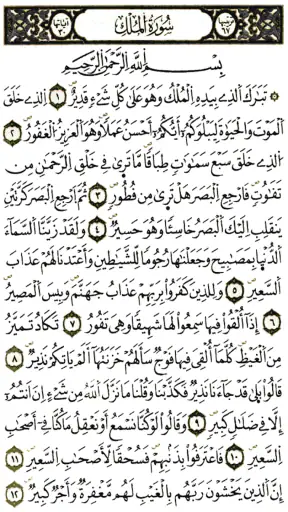 سُورَةُ الْمُلْكِ
آياتها ٣٠
بِسْمِ اللَّهِ الرَّحْمَنِ الرَّحِيمِ
تَبَارَكَ الَّذِي بِيَدِهِ الْمُلْكُ وَهُوَ عَلَى كُلِّ شَيْءٍ قَدِيرٌ ١ الَّذِي خَلَقَ
الْمَوْتَ وَالْحَيٰوةَ لِيَبْلُوَكُمْ أَيُّكُمْ أَحْسَنُ عَمَلًا وَهُوَ الْعَزِيزُ الْغَفُورُ ٢
الَّذِي خَلَقَ سَبْعَ سَمٰوَاتٍ طِبَاقًا مَا تَرَى فِي خَلْقِ الرَّحْمَنِ مِنْ
تَفَاوُتٍ فَارْجِعِ الْبَصَرَ هَلْ تَرَى مِنْ فُطُورٍ ٣ ثُمَّ ارْجِعِ الْبَصَرَ كَرَّتَيْنِ
يَنْقَلِبْ إِلَيْكَ الْبَصَرُ خَاسِئًا وَهُوَ حَسِيرٌ ٤ وَلَقَدْ زَيَّنَّا السَّمَاءَ
الدُّنْيَا بِمَصَابِيحَ وَجَعَلْنَاهَا رُجُومًا لِلشَّيَاطِينِ وَأَعْتَدْنَا لَهُمْ عَذَابَ
السَّعِيرِ ٥ وَلِلَّذِينَ كَفَرُوا بِرَبِّهِمْ عَذَابُ جَهَنَّمَ وَبِئْسَ الْمَصِيرُ
٦ إِذَا أُلْقُوا فِيهَا سَمِعُوا لَهَا شَهِيقًا وَهِيَ تَفُورُ ٧ تَكَادُ تَمَيَّزُ
مِنَ الْغَيْظِ كُلَّمَا أُلْقِيَ فِيهَا فَوْجٌ سَأَلَهُمْ خَزَنَتُهَا أَلَمْ يَأْتِكُمْ نَذِيرٌ ٨
قَالُوا بَلَى قَدْ جَاءَنَا نَذِيرٌ فَكَذَّبْنَا وَقُلْنَا مَا نَزَّلَ اللَّهُ مِنْ شَيْءٍ إِنْ أَنْتُمْ
إِلَّا فِي ضَلَالٍ كَبِيرٍ ٩ وَقَالُوا لَوْ كُنَّا نَسْمَعُ أَوْ نَعْقِلُ مَا كُنَّا فِي أَصْحَابِ
السَّعِيرِ ١٠ فَاعْتَرَفُوا بِذَنْبِهِمْ فَسُحْقًا لِأَصْحَابِ السَّعِيرِ ١١
إِنَّ الَّذِينَ يَخْشَوْنَ رَبَّهُمْ بِالْغَيْبِ لَهُمْ مَغْفِرَةٌ وَأَجْرٌ كَبِيرٌ ١٢